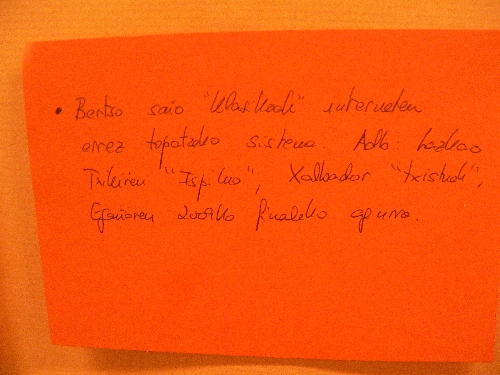 • Bertso saio "klasikoak" interneten
errez topatzeko sistema. Adb: Lazkao
Txikiren "Ispilua", Xalbador "txistuak",
Egañaren 2009ko finaleko agurra.